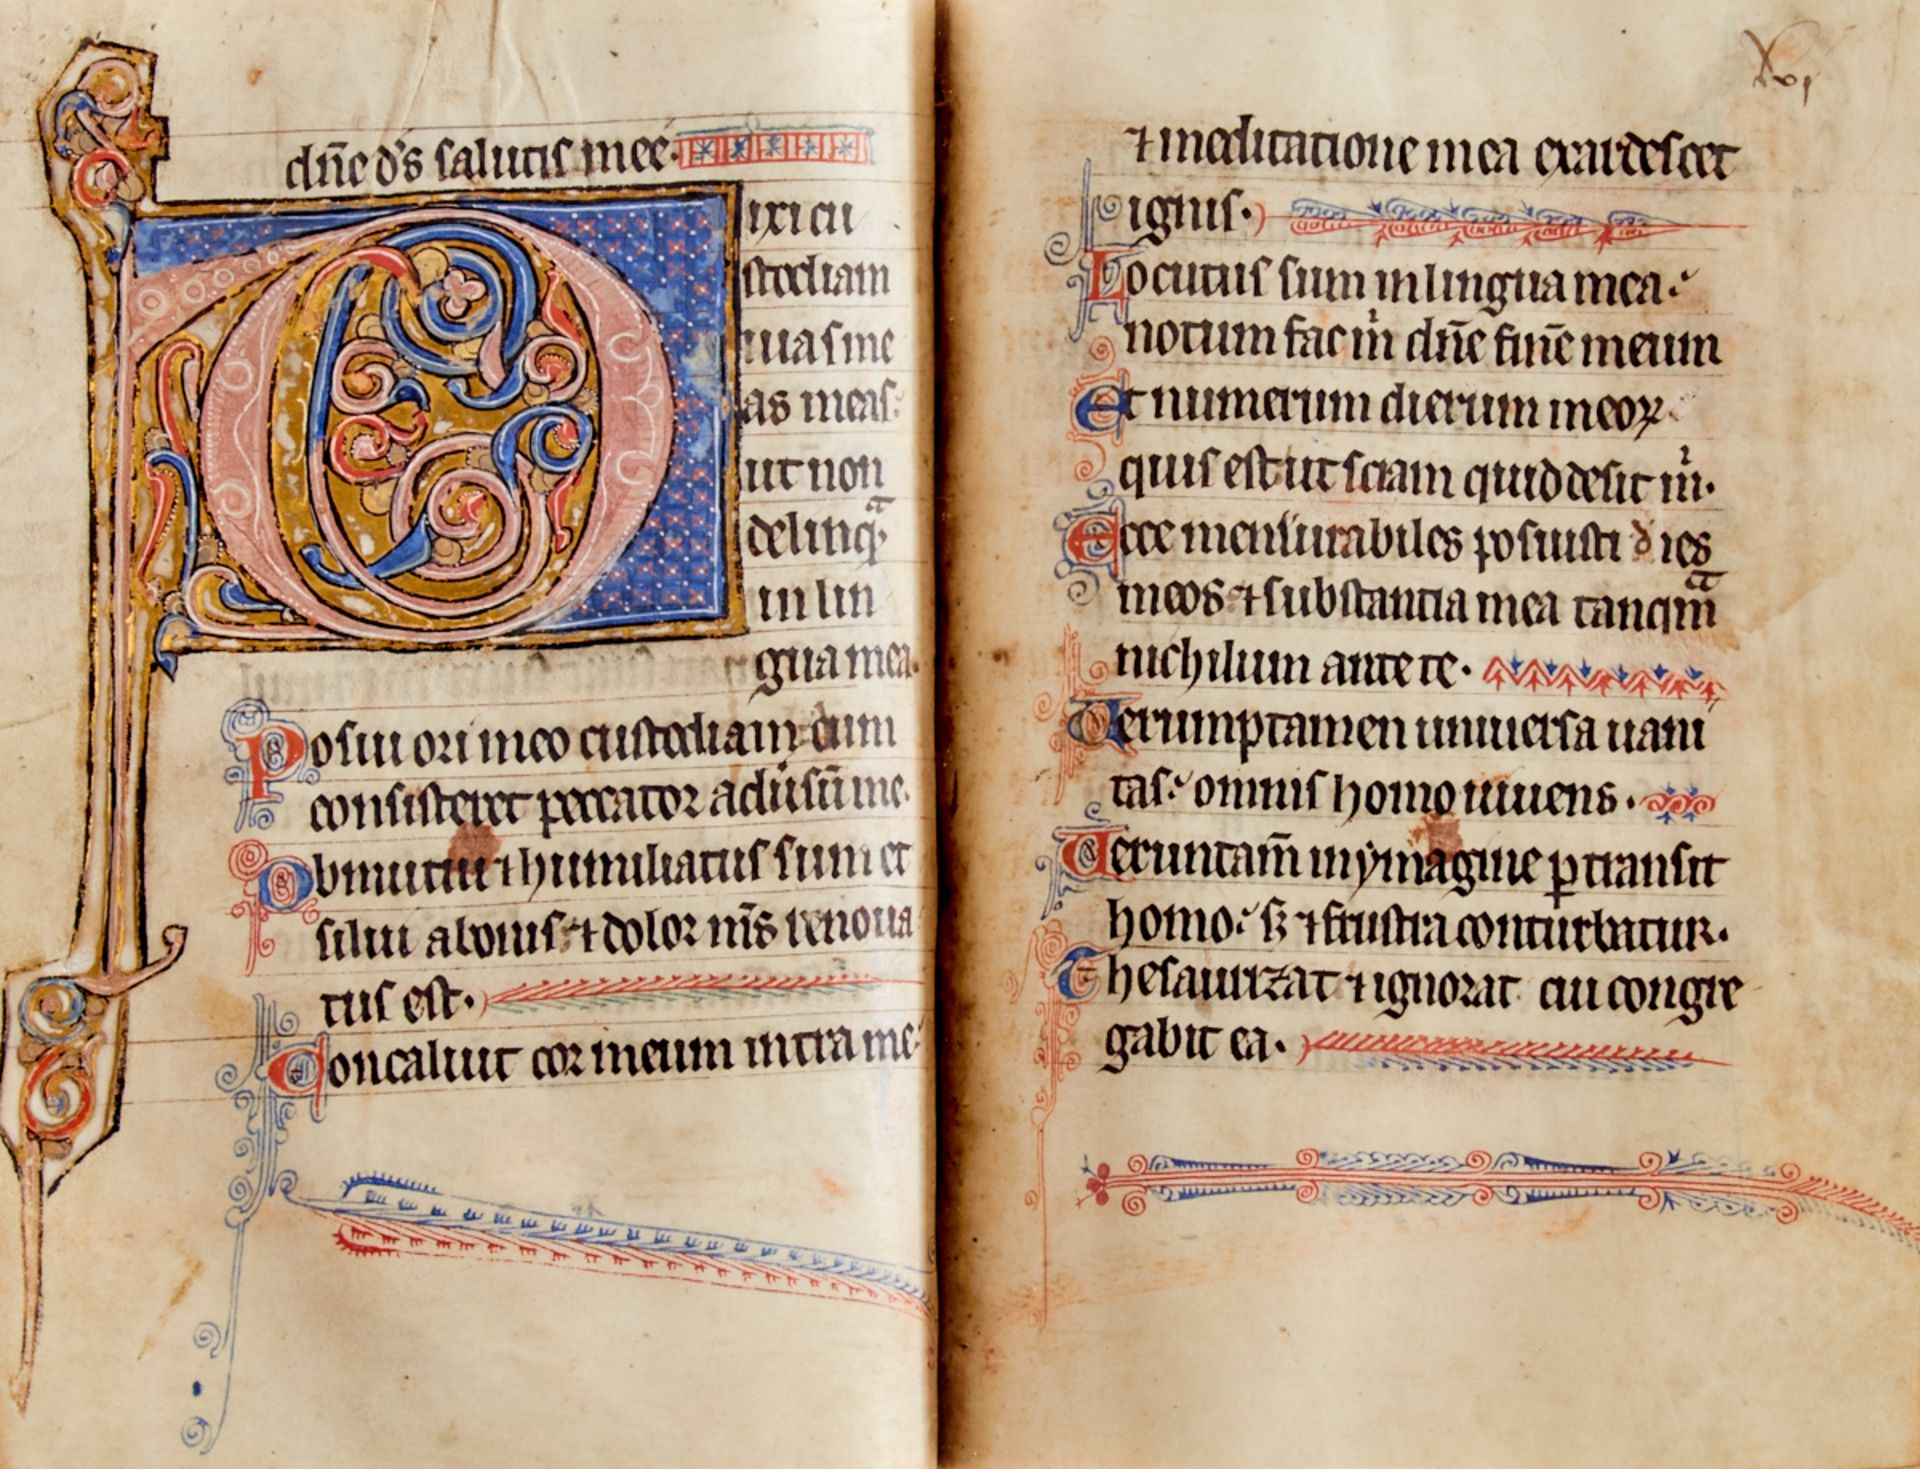 dn̄e ds̄ salutis mee.
Dixi cu
stodiam
uias me
as meas:
ut non
delinqͣ
in lin
gua mea.
Posui ori meo custodiam: cum
consisteret peccator adu̓sū me.
Obmutui ⁊ humiliatus sum et
silui a bonis: ⁊ dolor ms̄ renoua
tus est.
Concaluit cor meum intra me:
xvj
⁊ in meditatione mea exardescet
ignis.
Locutus sum in lingua mea:
notum fac m̓ dn̄e finē meum
Et numerum dierum meoꝝ
quis est ut sciam quid desit m̓.
Ecce mensurabiles posuisti dies
meos: ⁊ substantia mea tanqͣm
nichilum ante te.
Uerumptamen uniuersa uani
tas: omnis homo uiuens.
Ueruntam̄ in ymagine ꝑtransit
homo: sꝫ ⁊ frustra conturbatur.
Thesaurizat ⁊ ignorat cui congre
gabit ea.